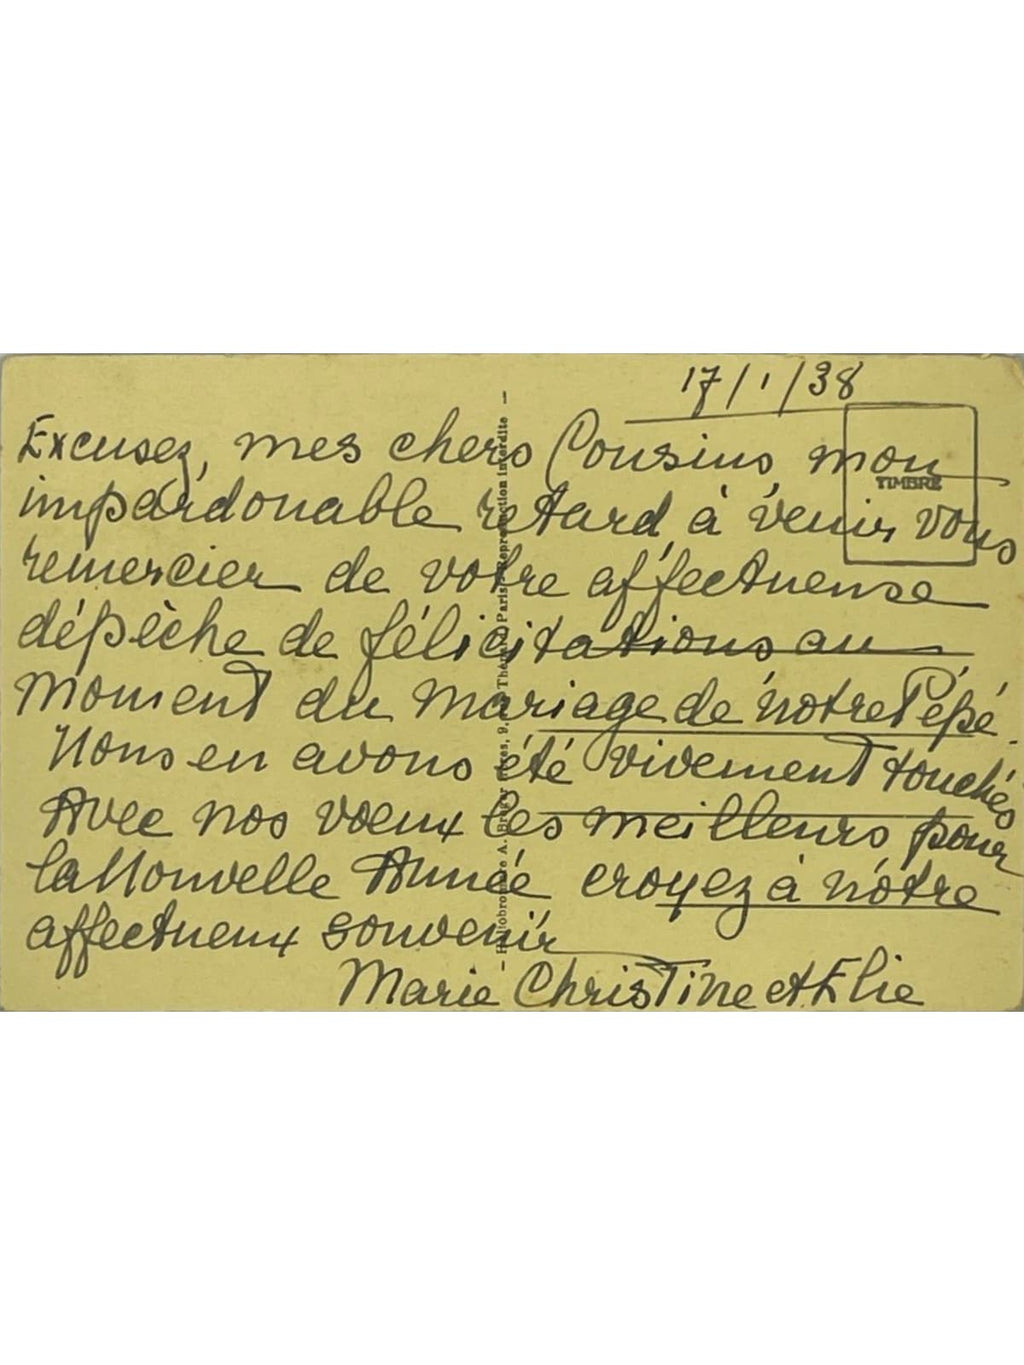 17/1/38
Excusez, mes chers Cousins, mon
TIMBRE
impardonable retard, à venir vous
remercier de votre affectueuse
dépêche de félicitations au
moment du mariage de notre Pépé.
Nous en avons été vivement touchés
Avec nos voeux les meilleurs pour
la Nouvelle Année croyez à notre
affectueux souvenir
Marie Christine et Elie
Paris - Reproduction interdite -